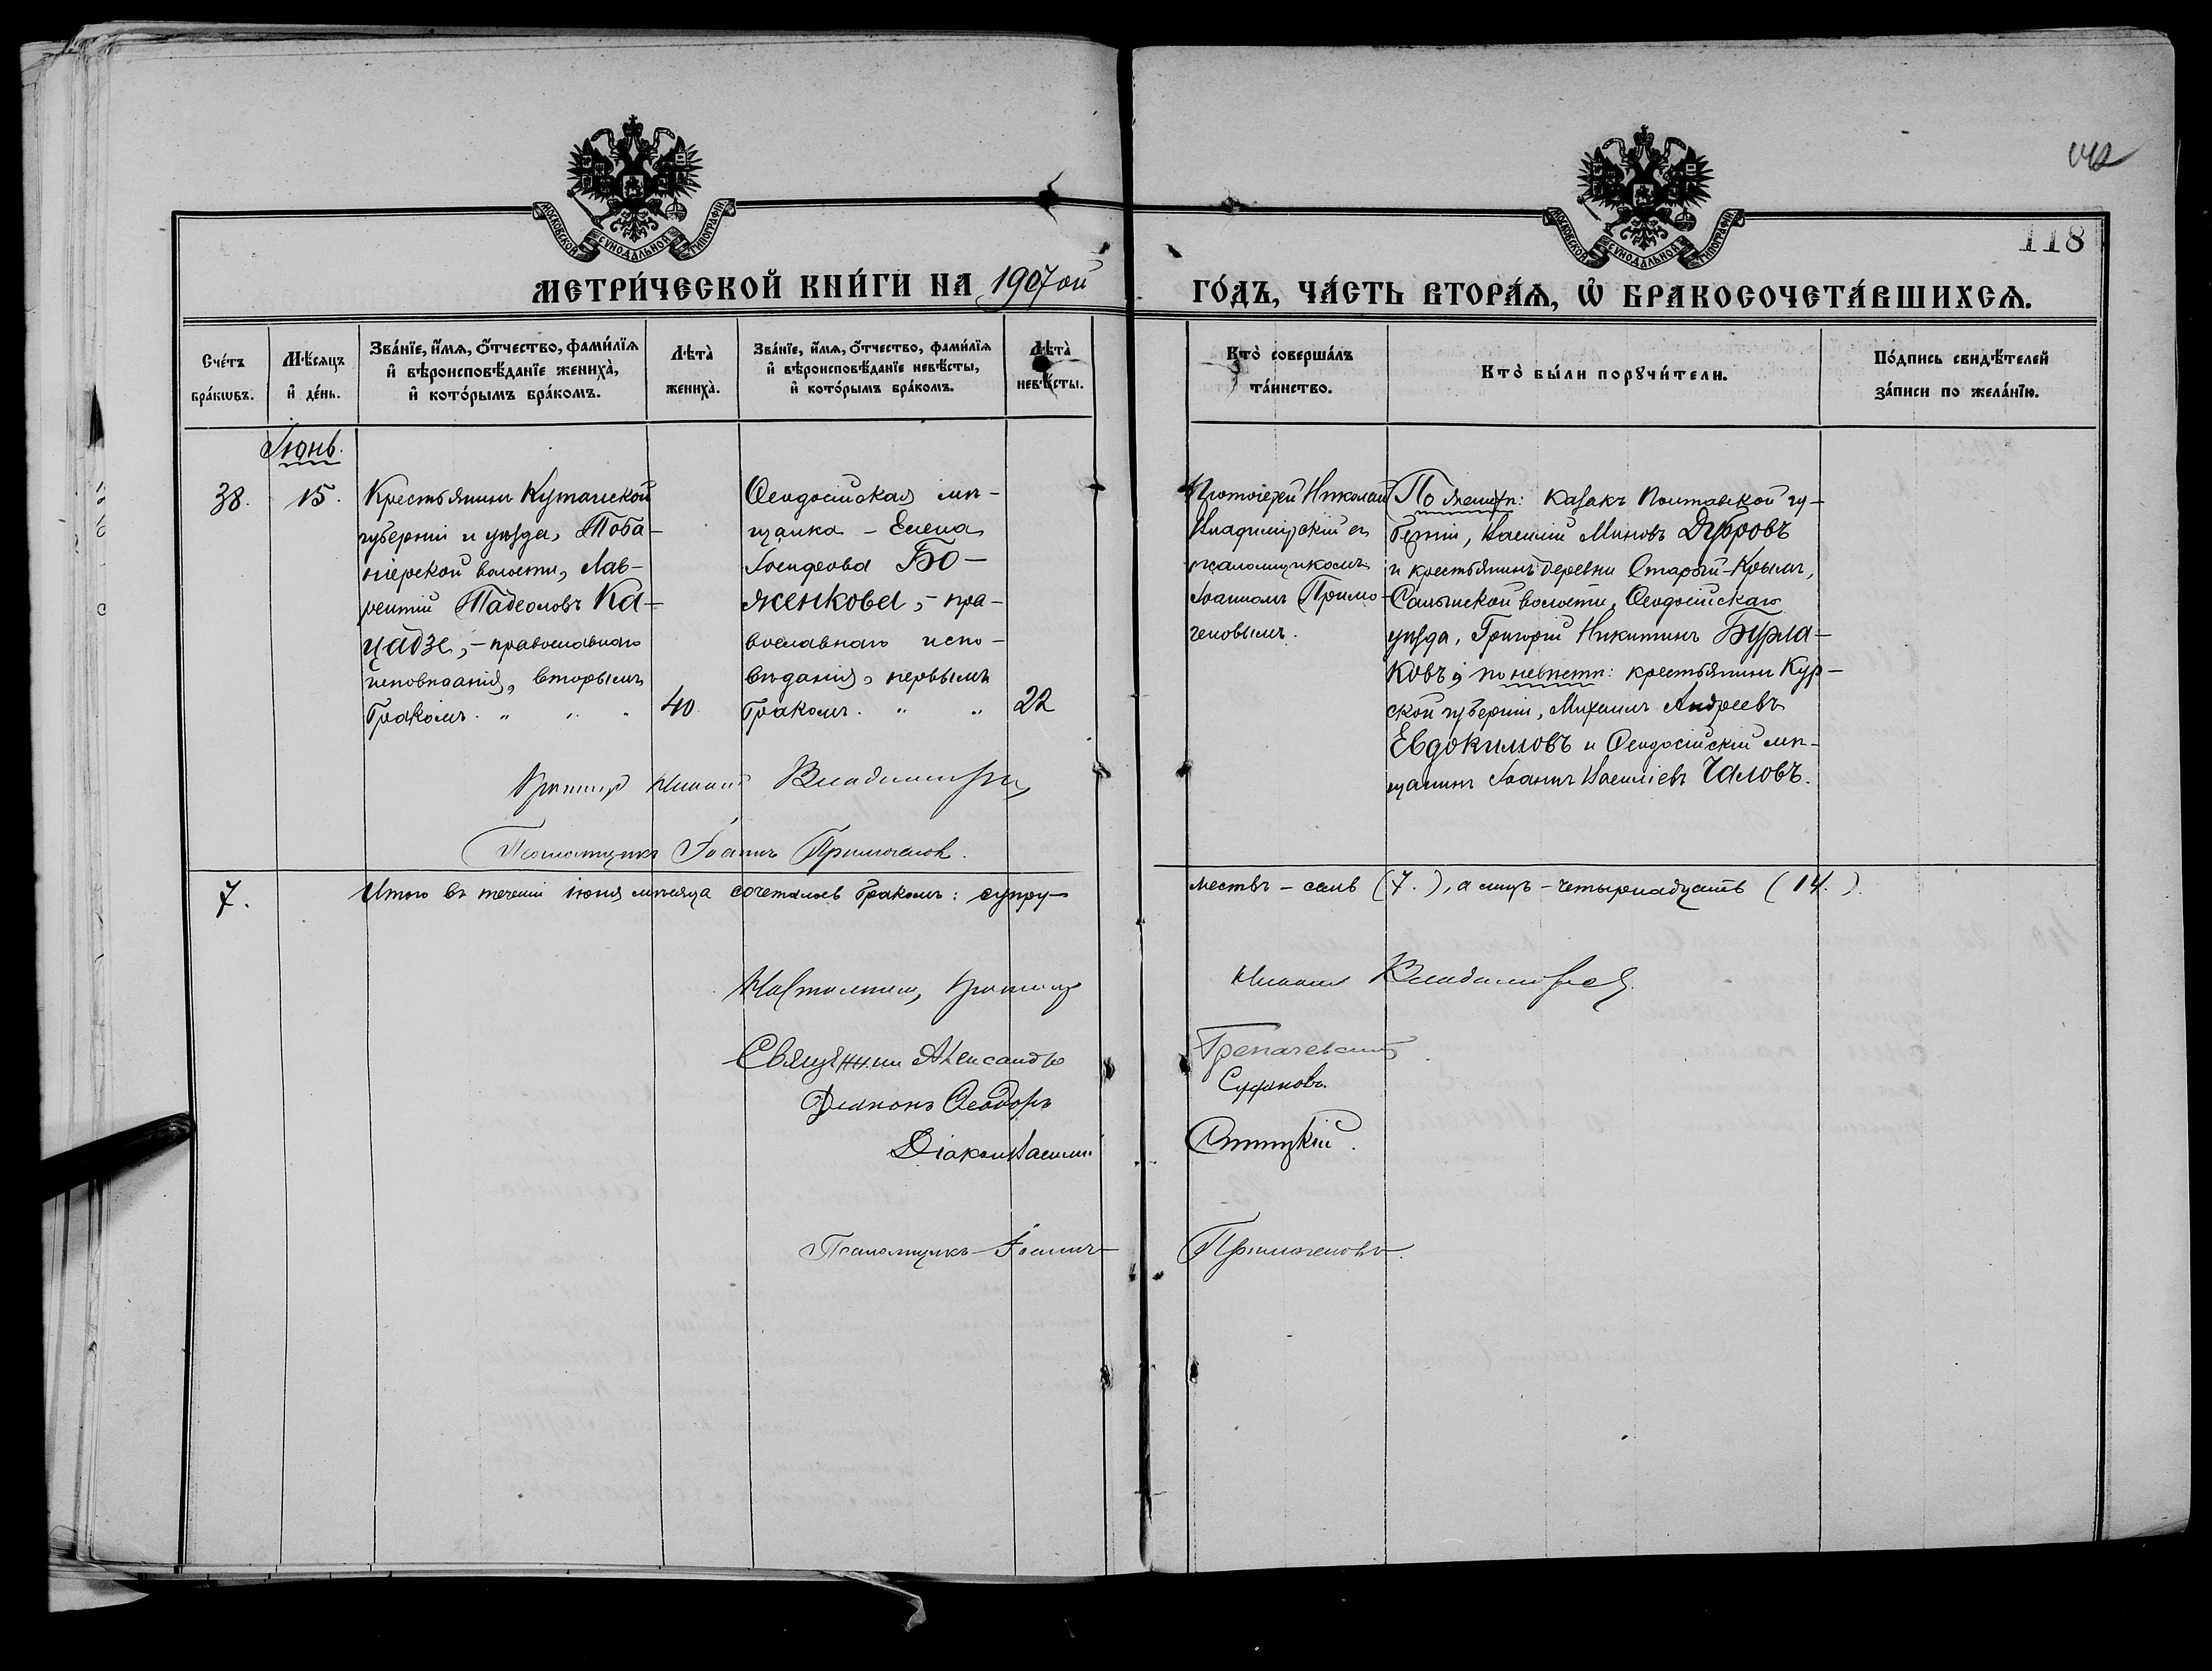 118
МОСКОВСКОЙ СУНОДАЛЬНОЙ ТИПОГРАФІИ
МОСКОВСКОЙ СУНОДАЛЬНОЙ ТИПОГРАФІИ
МЕТРИ́ЧЕСКОЙ КНИ́ГИ НА 1907ой
ГО́ДЪ, ЧА́СТЬ ВТОРА́Ѧ, Ѡ҆ БРАКОСОЧЕТА́ВШИХСѦ.
Сче́тъ бра́кѡвъ.
Мѣ́сяцъ и҆ де́нь.
Зва́нїе, и҆́мѧ, ѻ҆́тчество, фами́лїѧ
и҆ вѣроисповѣ́данїе жениха̀,
и҆ кото́рымъ бра́комъ.
Лѣта̀ жениха̀.
Зва́нїе, и҆́мѧ, ѻ҆́тчество, фами́лїѧ
и҆ вѣроисповѣ́данїе невѣ́сты,
и҆ кото́рымъ бра́комъ.
Лѣта̀ невѣ́сты.
Кто̀ соверша́лъ
та́инство.
Кто̀ бы́ли порꙋчи́тели.
По́дпись свидѣ́телей
за́писи по жела́нїю.
Іюнь.
38.
15.
Крестьянинъ Кутаиской
губерніи и уѣзда, Тоба-
ніерской волости, Лав-
рентій Тадеозовъ Ка-
цадзе, - православнаго
исповѣданія, вторымъ
бракомъ. " " "
40
Ѳеодосійская мѣ-
щанка - Елена
Іосифова Бо-
женкова, - пра-
вославнаго испо-
вѣданія, первымъ
бракомъ. " "
22
Протоіерей Николай
Владимірскій съ
псаломщикомъ
Іоанномъ Примо-
геновымъ.
По женихѣ: казакъ Полтавской гу-
берніи, Василій Миновъ Дубровъ
и крестьянинъ деревни Старый-Крымъ,
Салынской волости, Ѳеодосійскаго
уѣзда, Григорій Никитинъ Бурла-
ковъ; по невѣстѣ: крестьянинъ Кур-
ской губерніи, Михаилъ Андреевъ
Евдокимовъ и Ѳеодосійскій мѣ-
щанинъ Іоаннъ Василіевъ Чаловъ.
Протоіер Николай Владимірскій
Псаломщикъ Іоаннъ Примогеновъ.
7.
Итого въ теченіи іюня мѣсяца сочеталось бракомъ: супру-
жествъ - семь (7.), а лицъ - четырнадцать (14.).
Настоятель, Протоіер Николай Владимірскій
Священникъ Александръ
Діаконъ Ѳеодоръ
Діаконъ Василій
Псаломщикъ Іоаннъ Примогеновъ.